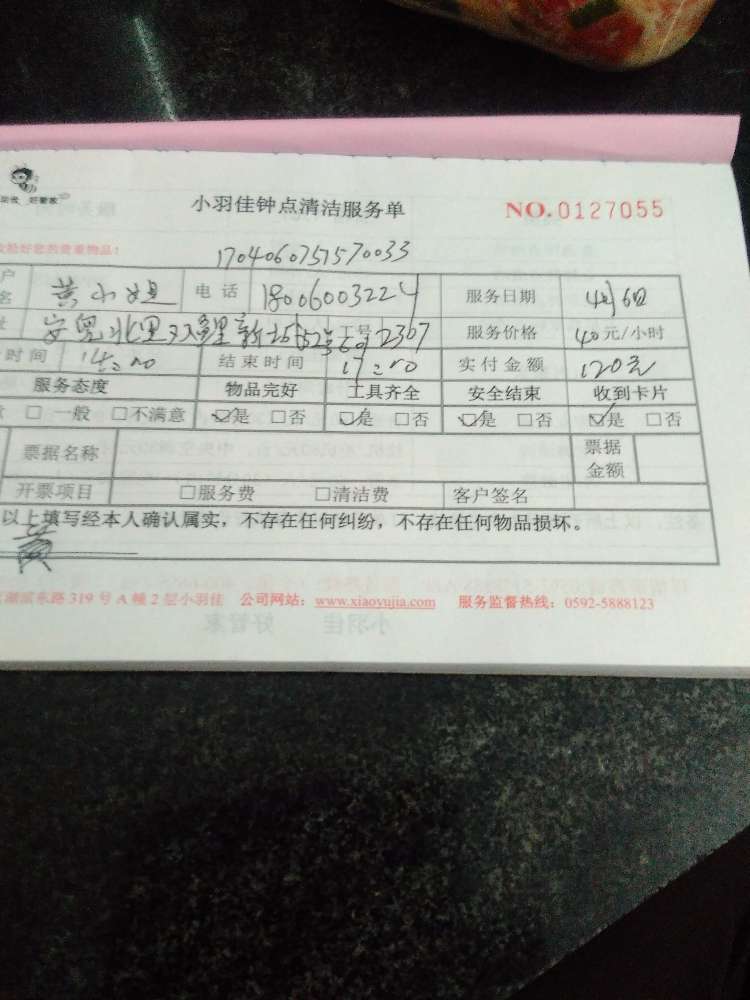 好管家
小羽佳钟点清洁服务单 NO.0127055
收拾好您的贵重物品!
1704060757570033
户名 黄小姐 电话 18006003224 服务日期 4月6日
址 工号 2307 服务价格 40元/小时
时间 14:00 结束时间 17:00 实付金额 120元
服务态度 物品完好 工具齐全 安全结束 收到卡片
意 □ 一般 □不满意 ☑是 □否 ☑是 □否 ☑是 □否 ☑是 □否
票据名称 票据金额
开票项目 □服务费 □清洁费 客户签名
以上填写经本人确认属实，不存在任何纠纷，不存在任何物品损坏。
黄
湖滨东路 319 号 A 幢 2 层小羽佳 公司网站：www.xiaoyujia.com 服务监督热线：0592-5888123